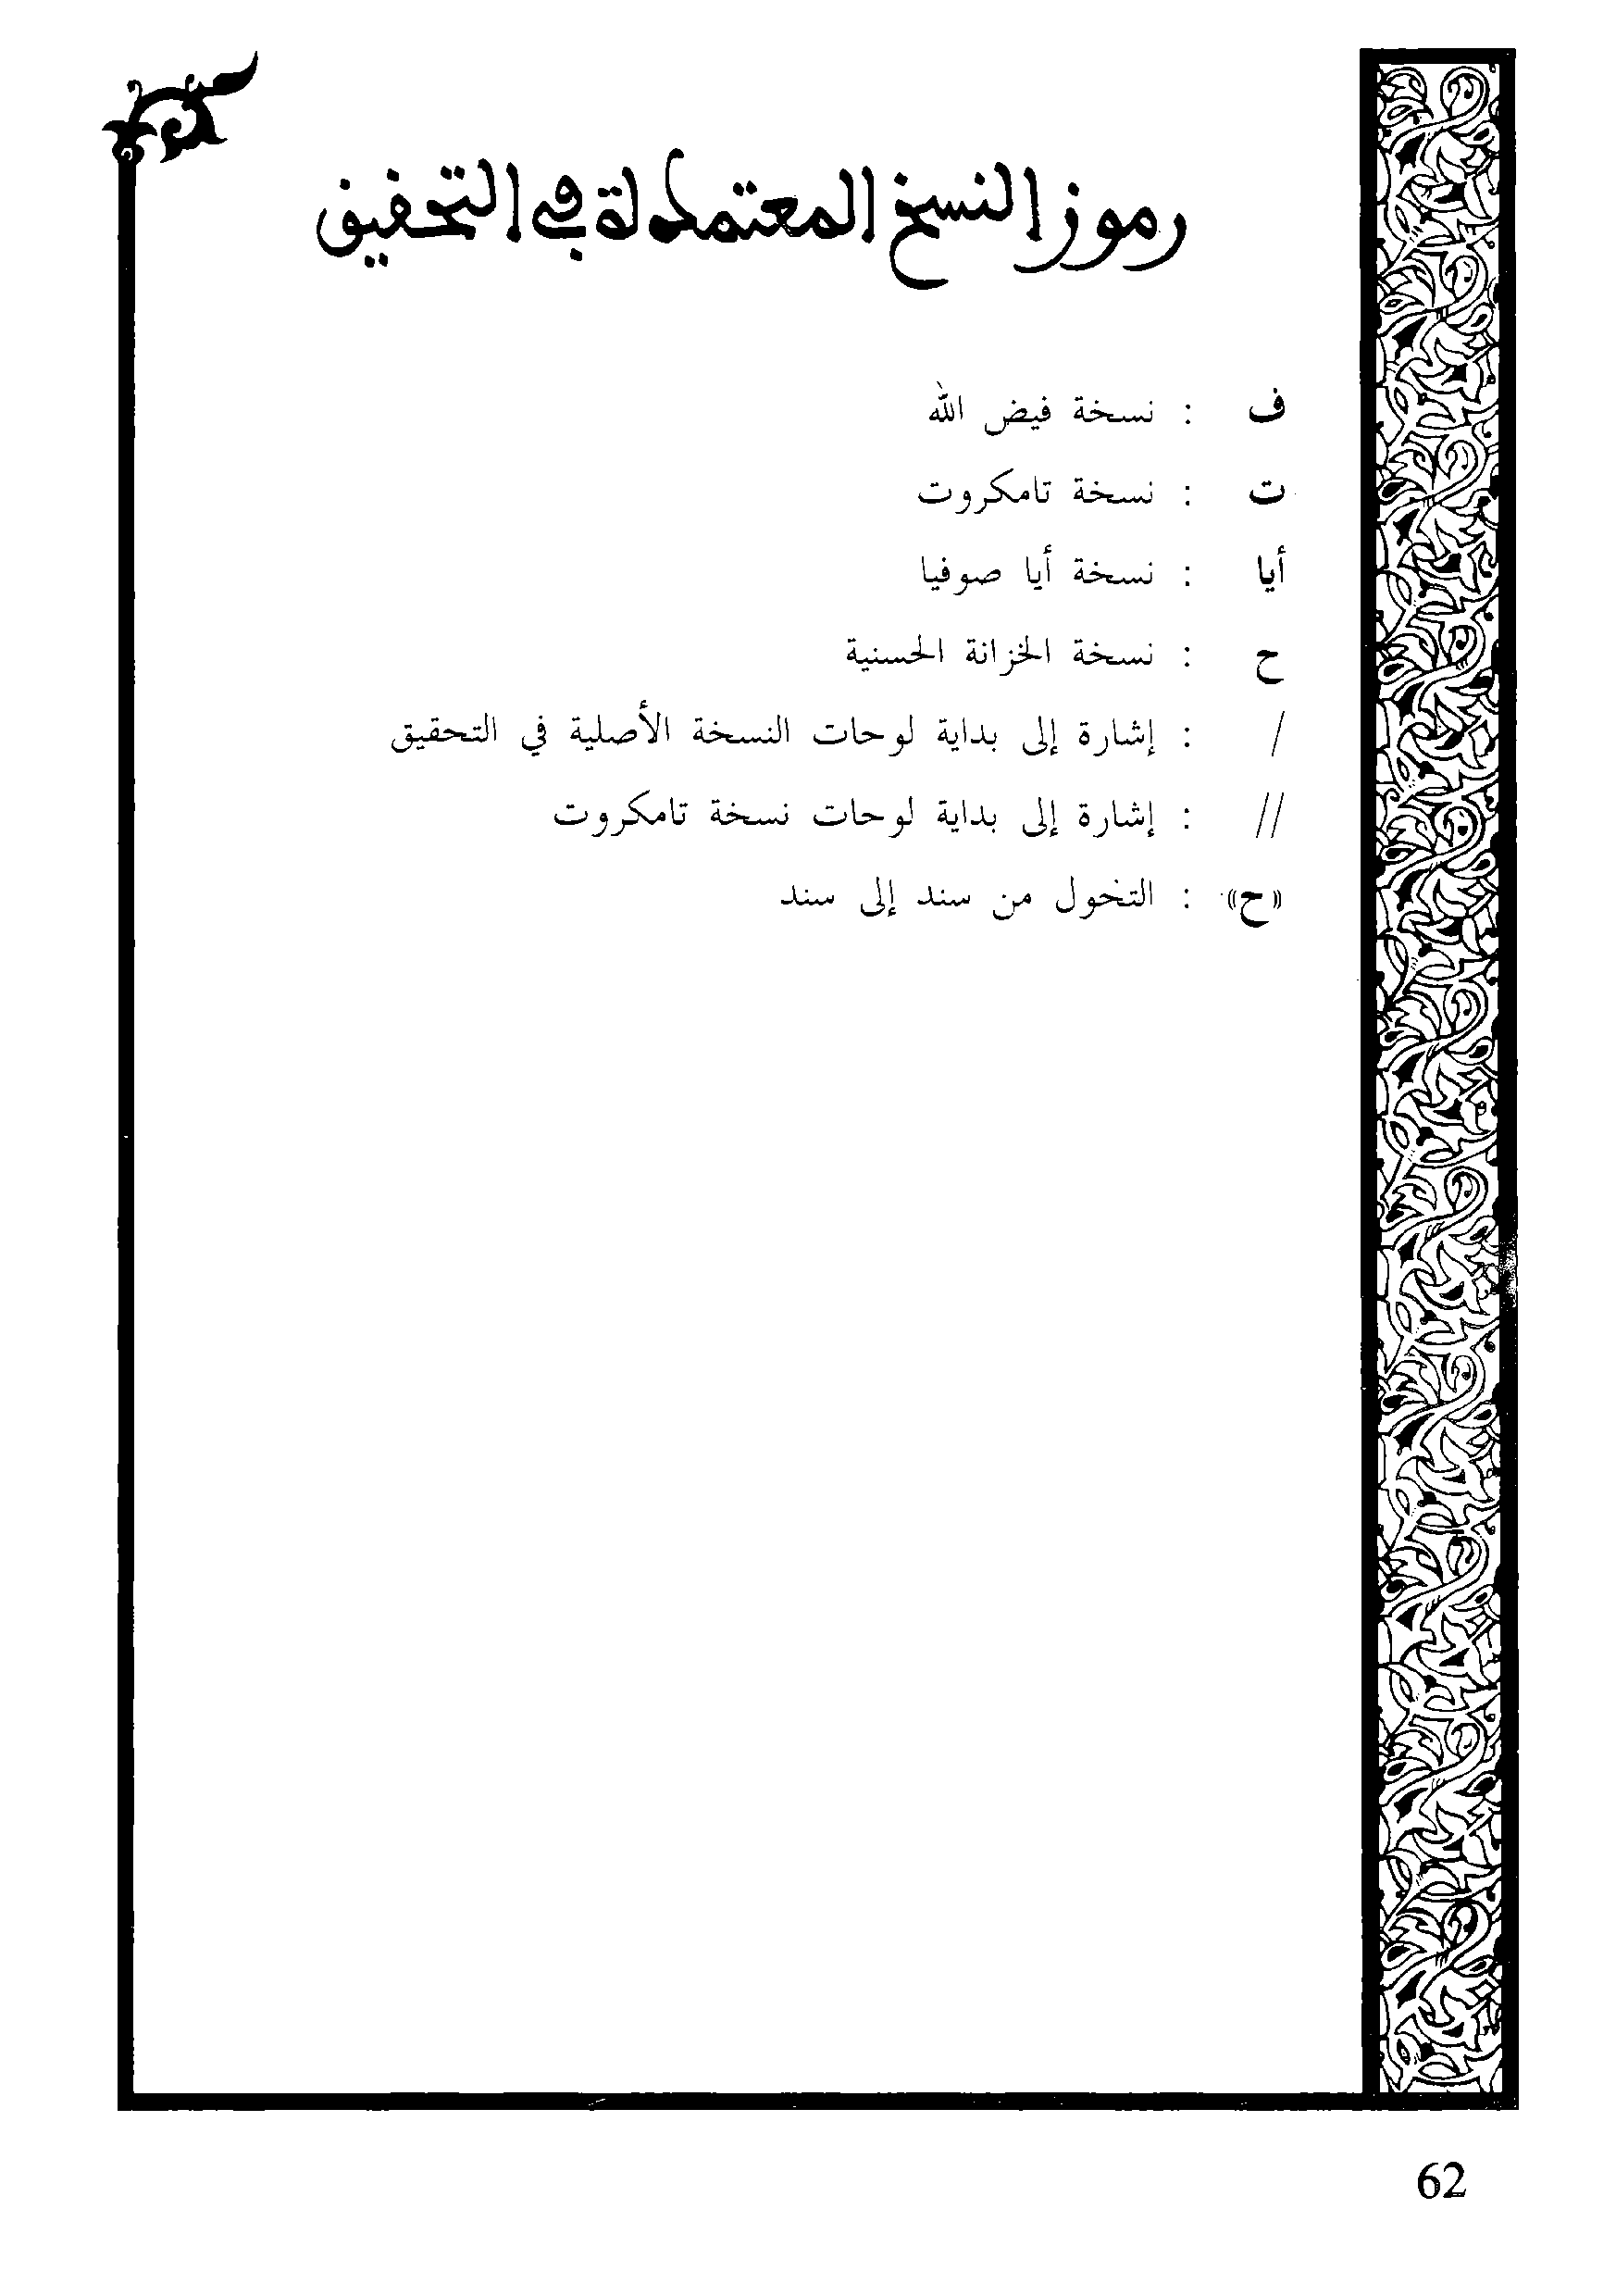 رموز النسخ المعتمدة في التحقيق
ف : نسخة فيض الله
ت : نسخة تامكروت
أيا : نسخة أيا صوفيا
ح : نسخة الخزانة الحسنية
/ : إشارة إلى بداية لوحات النسخة الأصلية في التحقيق
// : إشارة إلى بداية لوحات نسخة تامكروت
«ح» : التخول من سند إلى سند
62